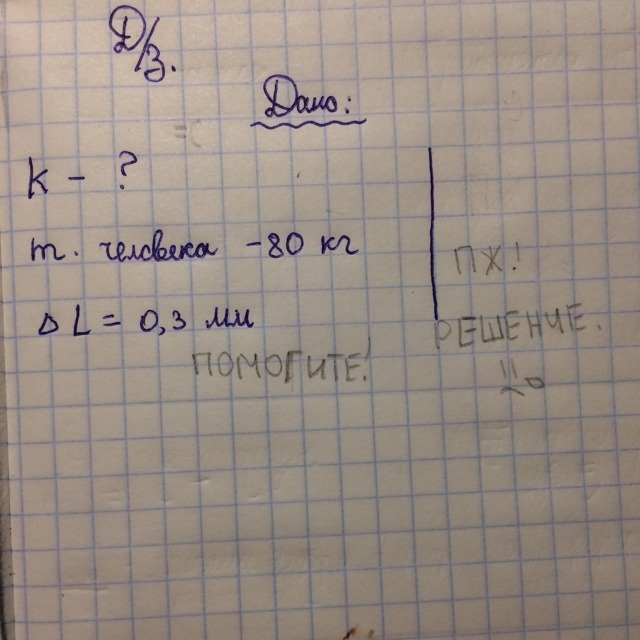 Д/З.
Дано:
=(
k - ?
m. человека - 80 кг
ПЖ!
Δ L = 0,3 мм
РЕШЕНИЕ.
ПОМОГИТЕ!